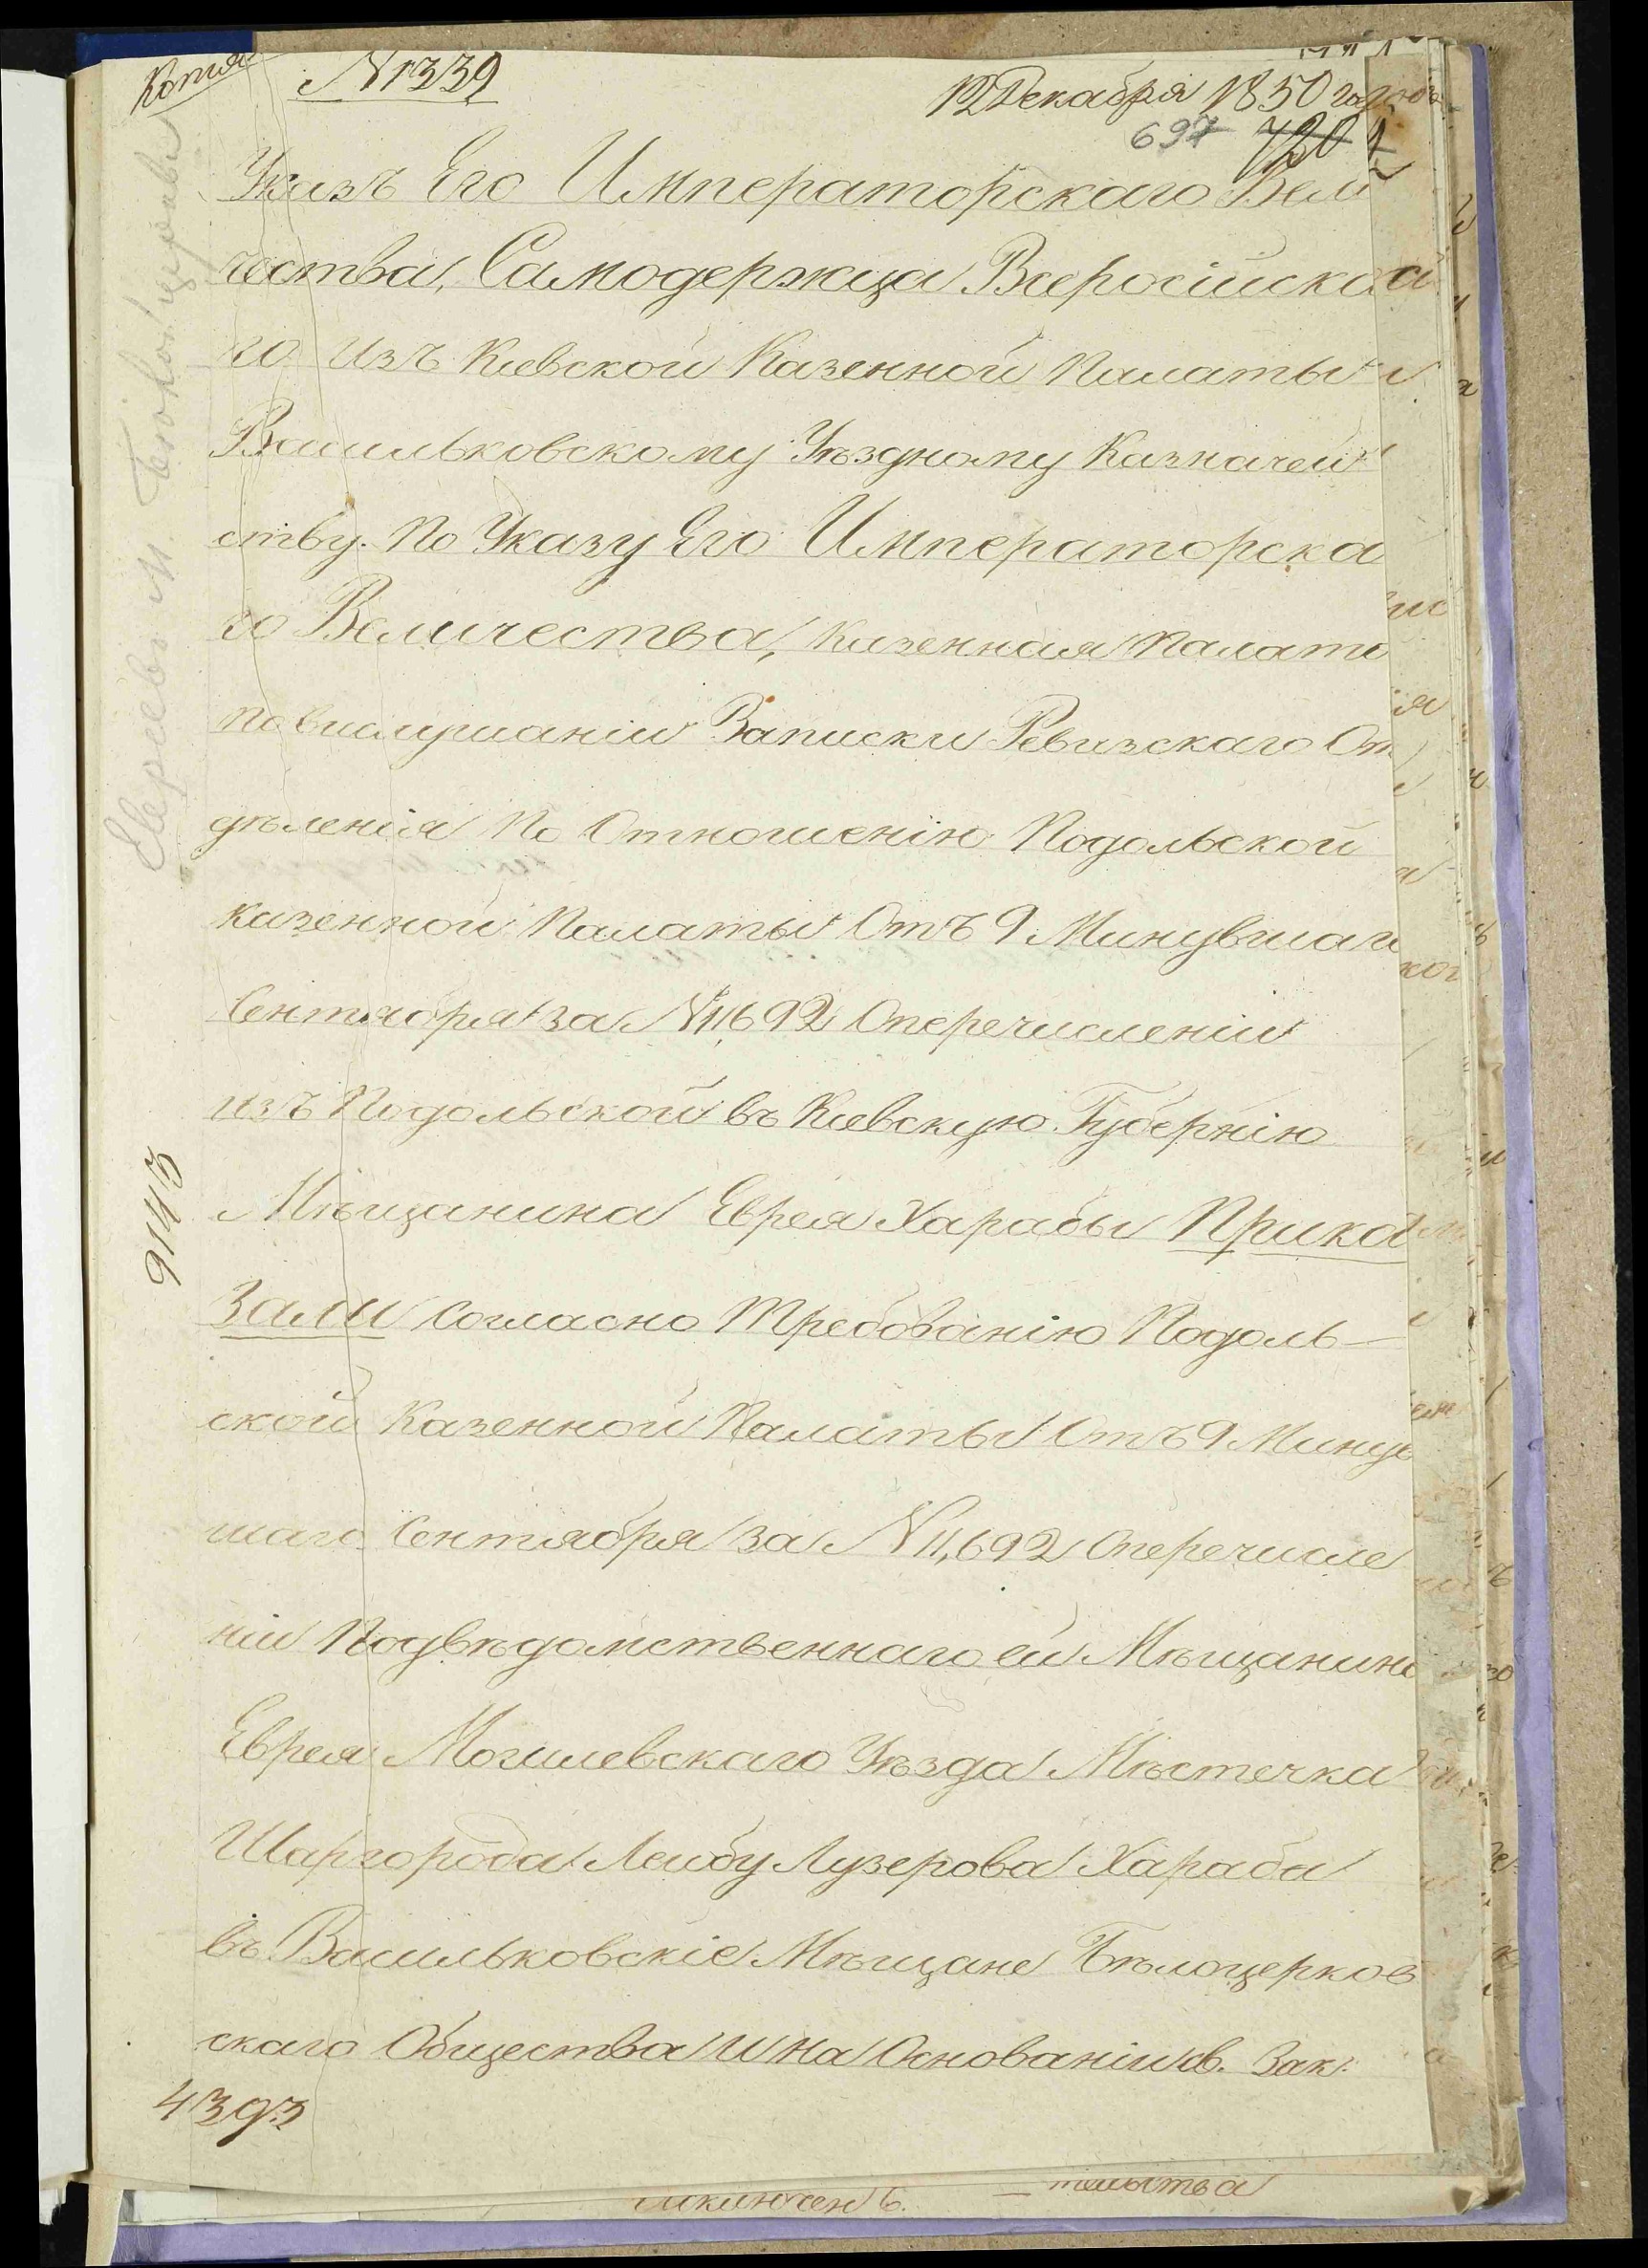 Копія
N 1339
12 Декабря 1850 года
697 720
Указъ Его Императорскаго Вели
чества, Самодержца Всеросійска
го изъ Кіевской Казенной Палаты
Васильковскому Уѣздному Казначей
ству. По Указу Его Императорска
го Величества, Казенная Палата
по выслушаніи Записки Ревизскаго От
дѣленія По Отношенію Подольской
казенной Палаты Отъ 9 Минувшаго
Сентября за N 11,692 Оперечисленіи
изъ Подольской въ Кіевскую Губернію
Мѣщанина Еврея Харабы Прика
зали Согласно Требованію Подоль-
ской Казенной Палаты Отъ 9 Минув
шаго Сентября за N 11,692 Оперечисле
ніи Подвѣдомственнаго ей Мѣщанина
Еврея Могилевскаго Уѣзда Мѣстечка
Шаргорода Лейбу Лузерова Хараба
въ Васильковскіе Мѣщане Бѣлоцерков
скаго Общества и на Основаніи св. Зак:
9143
4393
Евреевъ м.